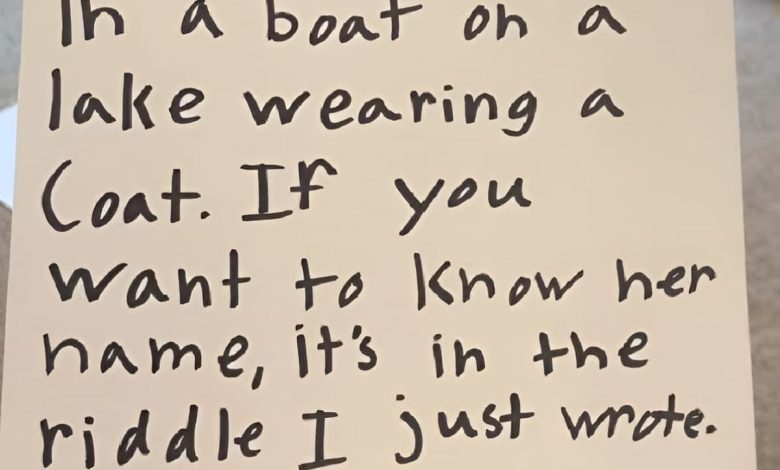 In a boat on a
lake wearing a
Coat. If you
want to know her
name, it's in the
riddle I just wrote.